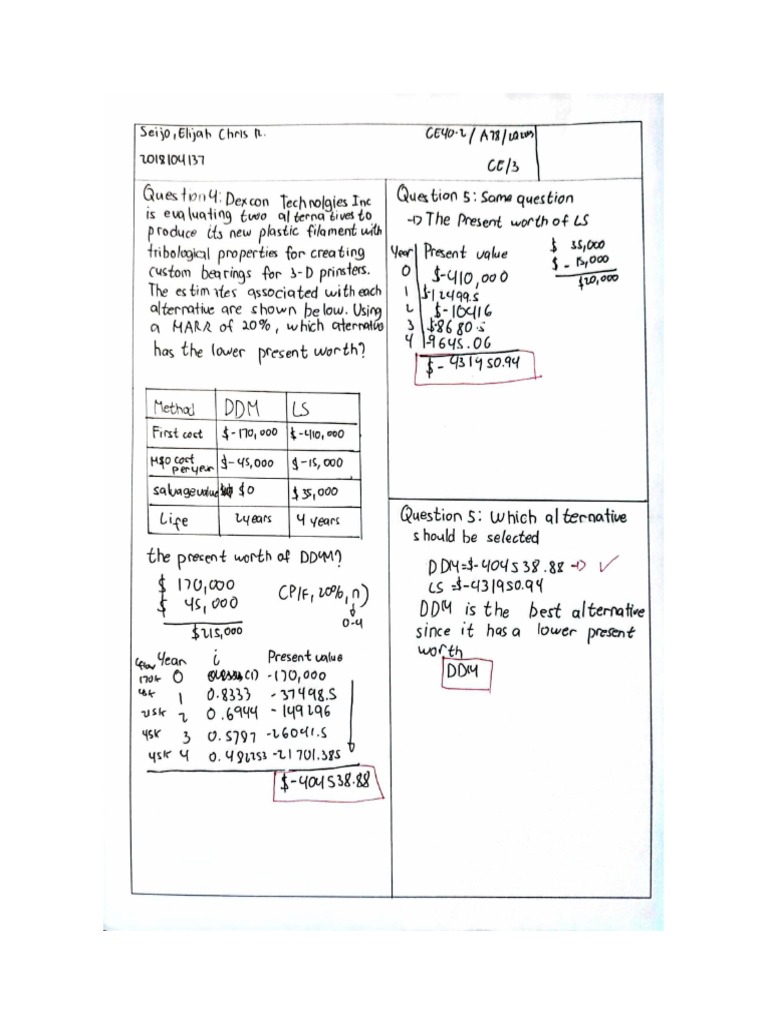 Seijo, Elijah Chris R.
2018104137
CE40-2/ A78/
CE/3
Question 4: Dexcon Technolgies Inc
is evaluating two alternatives to
produce its new plastic filament with
tribological properties for creating
custom bearings for 3-D prinsters.
The estimates associated with each
alternative are shown below. Using
a MARR of 20%, which aternative
has the lower present worth?
Method DDM LS
First cost $-170,000 $-410,000
M&O cost per year $-45,000 $-15,000
salvage value $0 $35,000
Life 2years 4 years
the present worth of DDM?
$ 170,000
$ 45,000
$215,000
(P/F, 20%, n)
0-4
Year i Present value
170k 0 (1) -170,000
45k 1 0.8333 -37498.5
215k 2 0.6944 -149296
45k 3 0.5787 -26041.5
45k 4 0.482253 -21701.385
$-404538.88
Question 5: Same question
→ The Present worth of LS
$ 35,000
$ -15,000
$20,000
Year Present value
0 $-410,000
1 $-12499.5
2 $-10416
3 $-8680.5
4 -9645.06
$-431950.94
Question 5: Which alternative
should be selected
DDM=$-404538.88 → ✓
LS =$-431950.94
DDM is the best alternative
since it has a lower present
worth
DDM